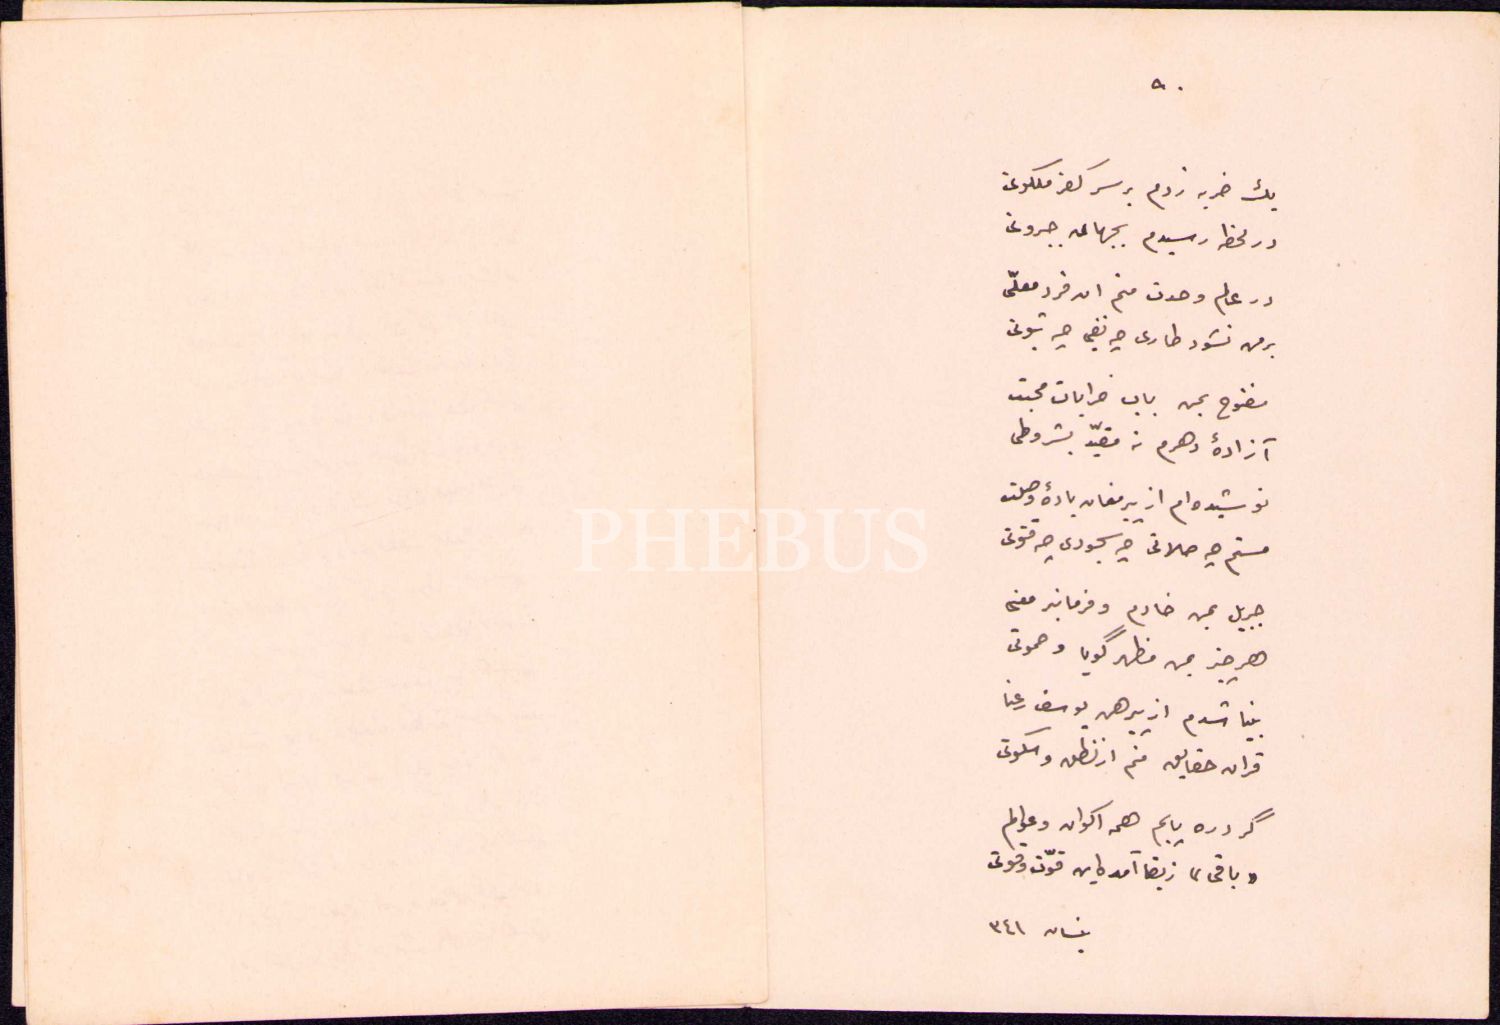 ٥٠
یك ضربه زدم بر سر كفر ملكوتی
در لحظه رسیدم بجهان جبروتی
در عالم وحدت منم ان فرد معلّی
بر من نشود طاری چه نفی چه ثبوتی
مفتوح بمن باب خرابات محبت
آزادهٔ دهرم نه مقیّد بشروطی
نوشیده‌ام از پیر مغان بادهٔ وصلت
مستم چه صلاتی چه سجودی چه قنوتی
جبریل بمن خادم و فرمانبر معنی
هر چیز بمن مظهر گویا و صموتی
بینا شدم از پیرهن یوسف رعنا
قران حقایق منم از نطق و سكوتی
گر دره یابم همه اكوان و عوالم
باقی زبقا آمد قوّت وقوتی
نیسان ٣٤١
PHEBUS